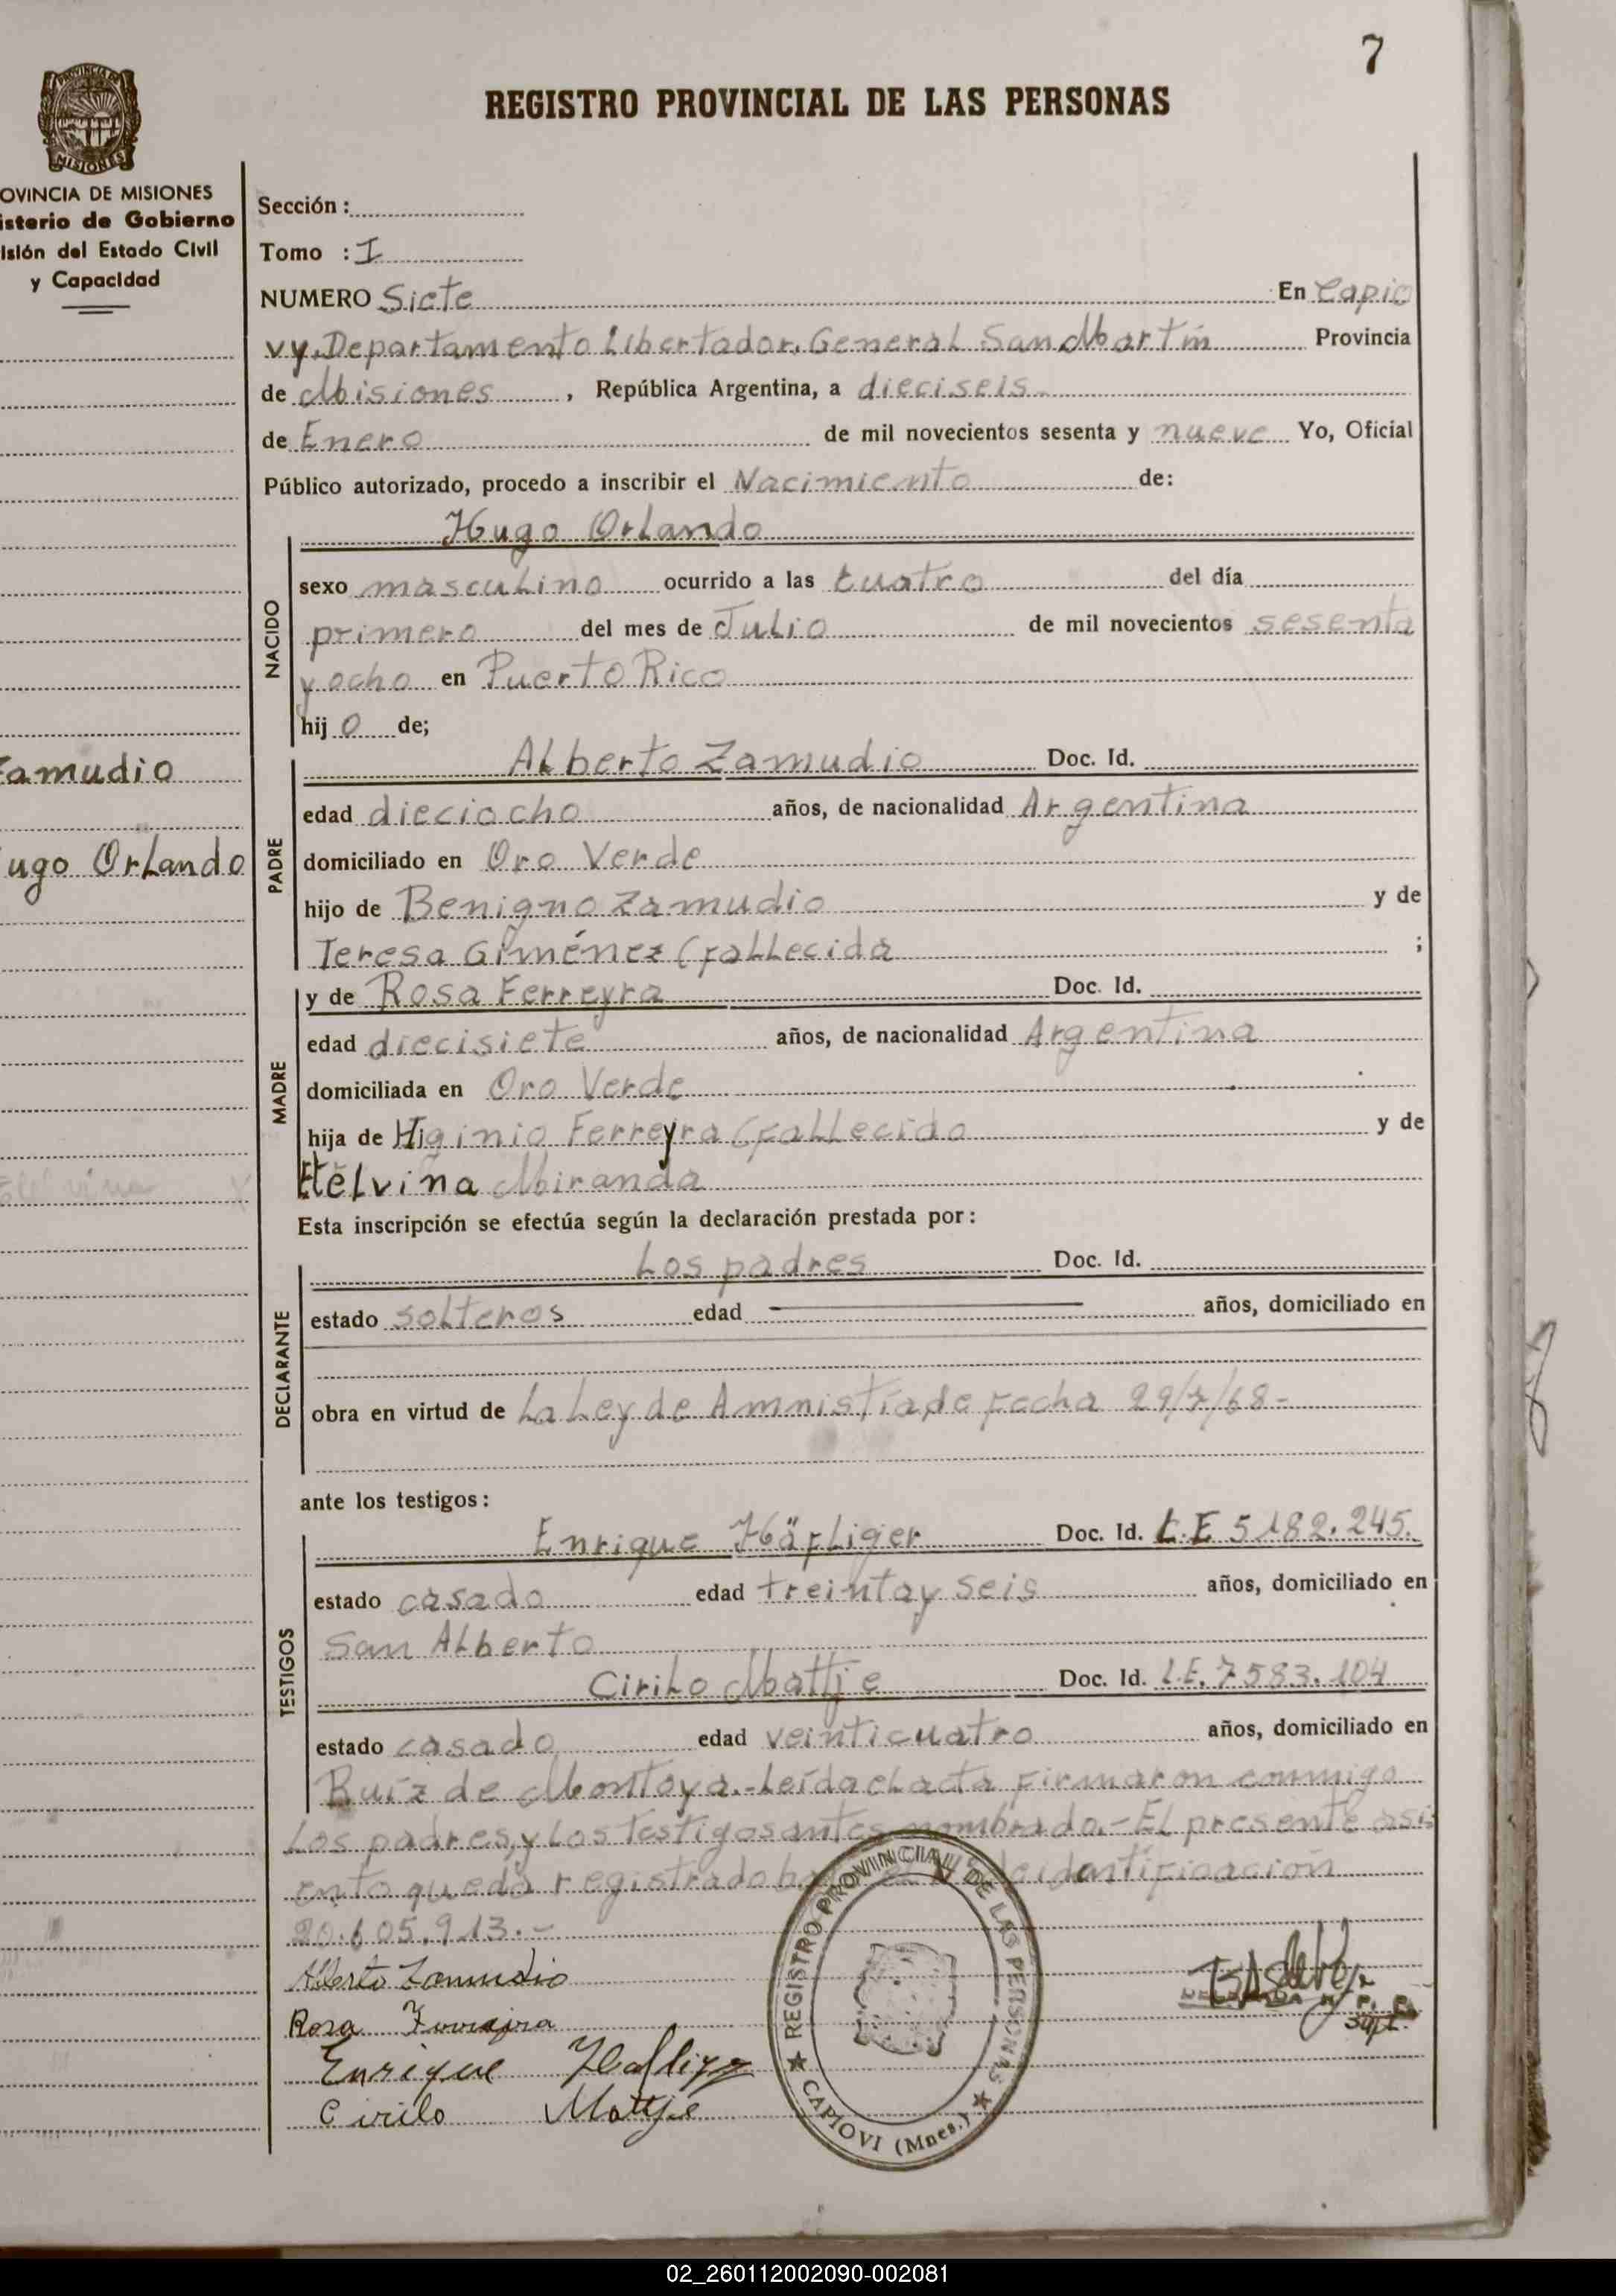 7
REGISTRO PROVINCIAL DE LAS PERSONAS
PROVINCIA DE
MISIONES
OVINCIA DE MISIONES
isterio de Gobierno
isión del Estado Civil
y Capacidad
amudio
ugo Orlando
Sección:
Tomo : I
NUMERO Siete En Capio
vy, Departamento Libertador General San Martín Provincia
de Misiones , República Argentina, a dieciseis
de Enero de mil novecientos sesenta y nueve Yo, Oficial
Público autorizado, procedo a inscribir el Nacimiento de:
NACIDO
Hugo Orlando
sexo masculino ocurrido a las cuatro del día
primero del mes de Julio de mil novecientos sesenta
y ocho en Puerto Rico
hij o de;
PADRE
Alberto Zamudio Doc. Id.
edad dieciocho años, de nacionalidad Argentina
domiciliado en Oro Verde
hijo de Benigno Zamudio y de
Teresa Giménez (fallecida ;
MADRE
y de Rosa Ferreyra Doc. Id.
edad diecisiete años, de nacionalidad Argentina
domiciliada en Oro Verde
hija de Higinio Ferreyra (fallecido y de
Etelvina Miranda
Esta inscripción se efectúa según la declaración prestada por:
DECLARANTE
Los padres Doc. Id.
estado solteros edad años, domiciliado en
obra en virtud de La Ley de Amnistía, de fecha 29/7/68-
ante los testigos:
TESTIGOS
Enrique Häfliger Doc. Id. L.E 5182.245.
estado casado edad treinta y seis años, domiciliado en
San Alberto
Cirilo Mattje Doc. Id. L.E. 7583.104
estado casado edad veinticuatro años, domiciliado en
Ruíz de Montoya.- Leída el acta firmaron conmigo
Los padres, y los testigos antes nombrado.- El presente asi
ento queda registrado de identificación
20.605.913.-
Alberto Zamudio
Rosa Ferreira
Enrique Häfliger
Cirilo Mattje
REGISTRO PROVINCIAL DE LAS PERSONAS
CAPIOVI (Mnes.)
02_260112002090-002081